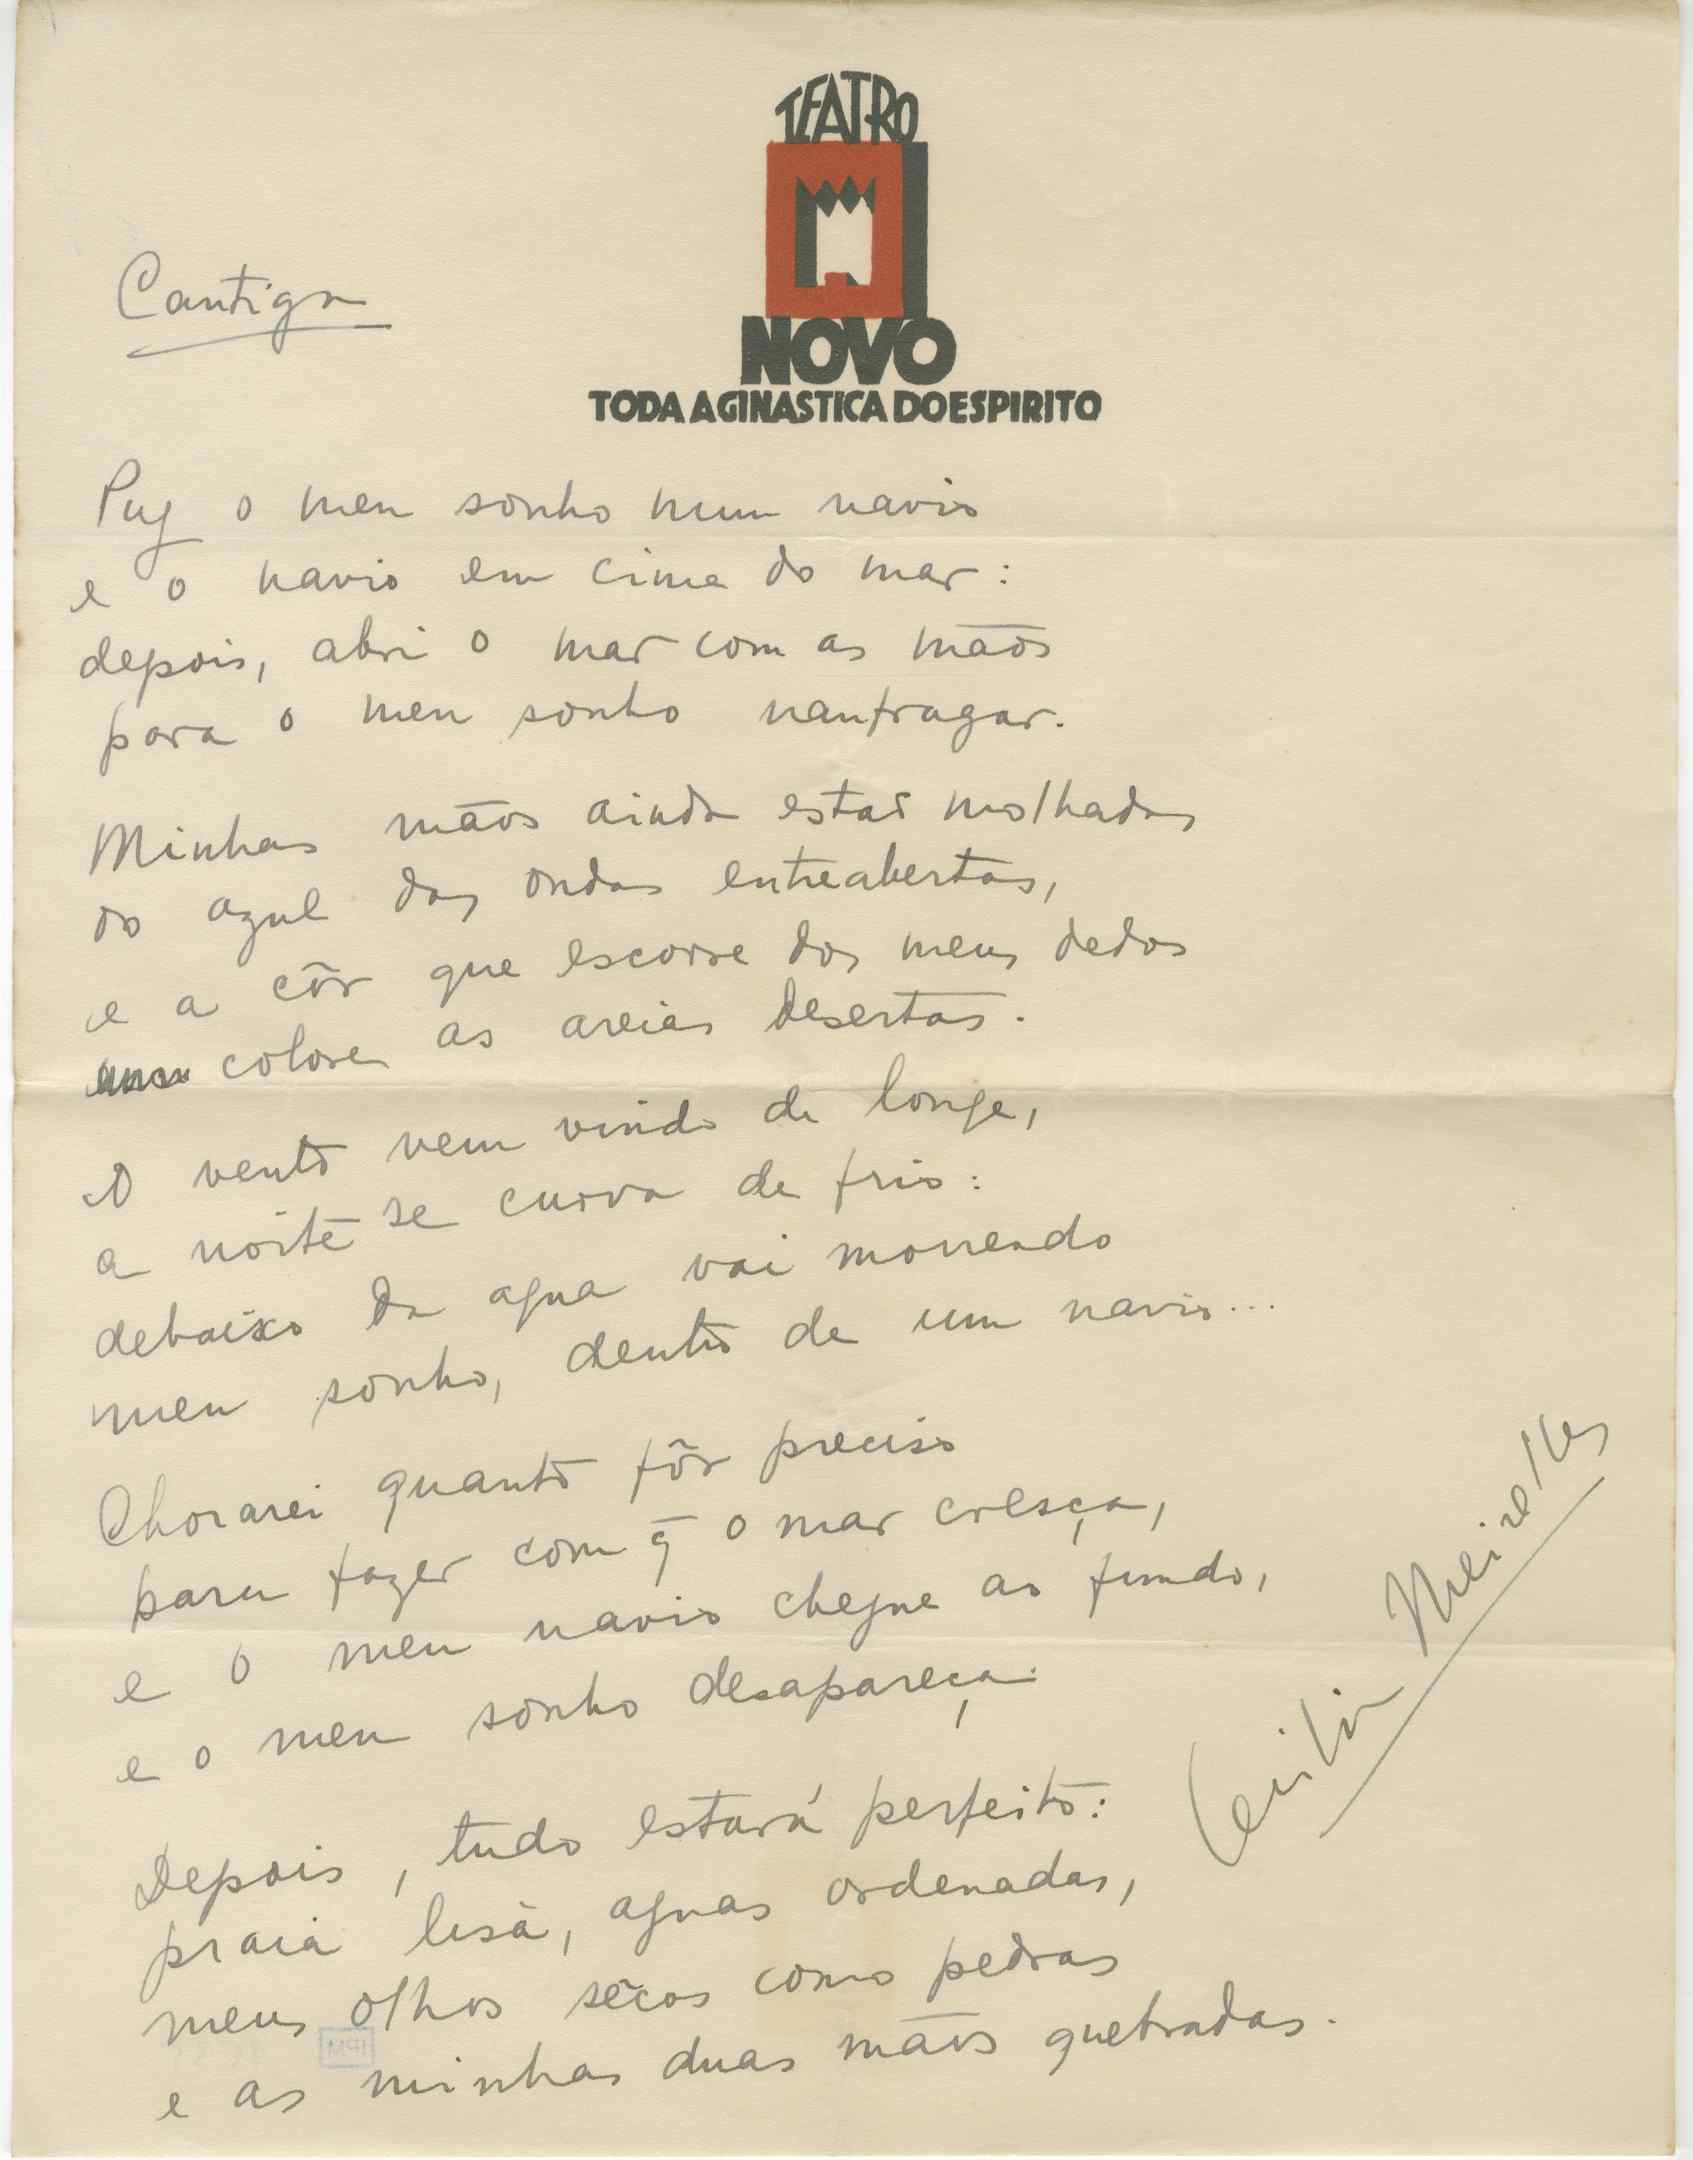 TEATRO
NOVO
TODA A GINASTICA DO ESPIRITO
Cantiga
Puz o meu sonho num navio
e o navio em cima do mar:
depois, abri o mar com as mãos
para o meu sonho naufragar.
Minhas mãos ainda estaõ molhadas
do azul das ondas entreabertas,
e a côr que escorre dos meus dedos
colore as areias desertas.
O vento vem vindo de longe,
a noite se curva de frio:
debaixo da agua vai morrendo
meu sonho, dentro de um navio...
Chorarei quanto fôr preciso
para fazer com q̄ o mar cresça,
e o meu navio chegue ao fundo,
e o meu sonho desapareça.
Depois, tudo estará perfeito:
praia lisa, aguas ordenadas,
meus olhos sêcos como pedras
e as minhas duas mãos quebradas.
Cecilia Meirelles